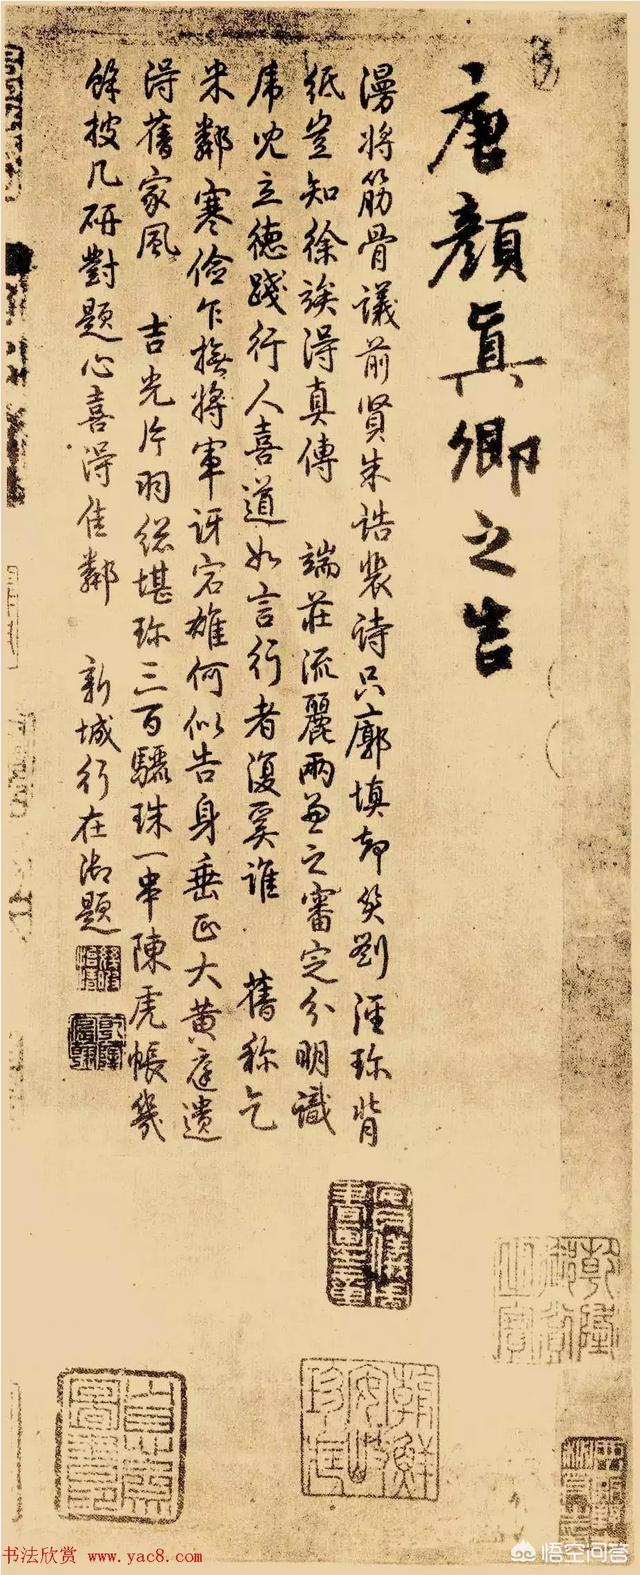 唐顏真卿之告
漫將筋骨議前賢朱誥裴诗只廓填却笑劉涇珍背
紙豈知徐族得真傳 端莊流麗兩兼之審定分明識
虎兒立德踐行人喜道如言行者復奚誰 舊稱乞
米鄰寒儉乍撫將軍訝宕雄何似告身垂正大黃庭遺
得舊家風 吉光片羽總堪珍三百驪珠一串陳虎帳幾
餘披几研對題心喜得佳鄰 新城行在御題
乾隆宸翰
乾隆御賞之寶
朝鮮安岐珍藏
书法欣赏 www.yac8.com
悟空问答